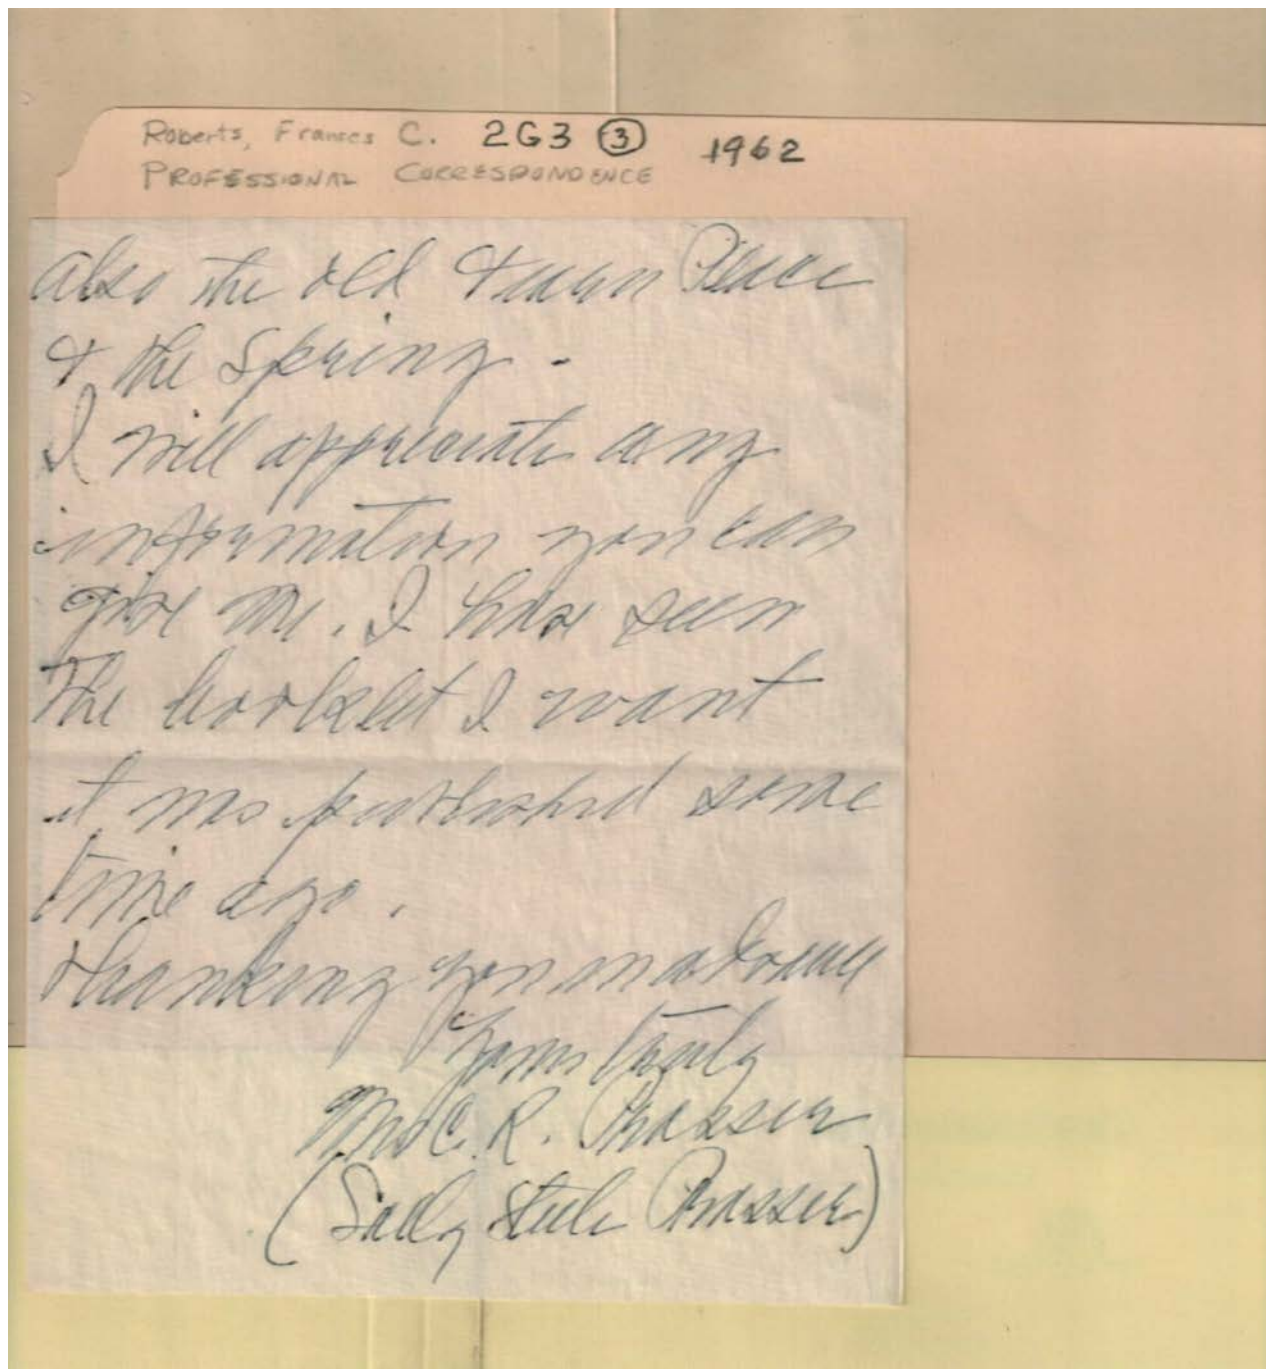 Roberts, Frances C. 2G3 ③ 1962
PROFESSIONAL CORRESPONDENCE
also the old Place
& the Spring -
I will appreciate any
information you can
give me. I have seen
The booklet I want
it was published some
time ago.
Thanking you in advance
Yours truly
Mrs C. R.
(Sally Steele)